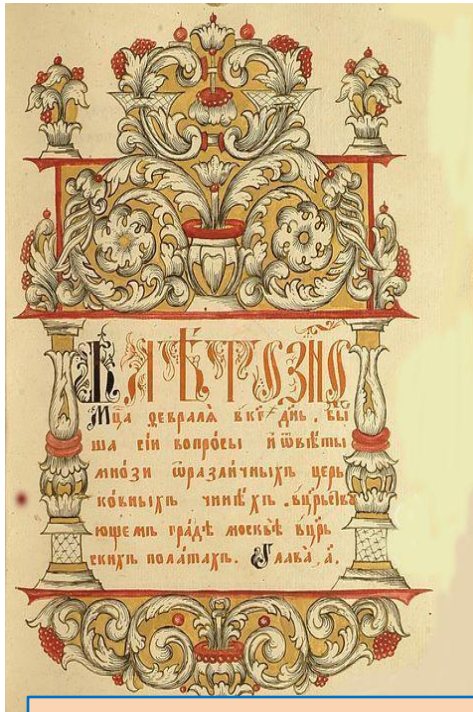 В лѣто ҂зн҃ѳ
Мц҃а Февралѧ в к҃г дн҃ь бы
ша сїи вопро́сы и҆ ѿвѣ́ты
мно́зи ѿразли́чныхъ церь
ко́вныхъ чинѣ́хъ . вцр҃ьствꙋ
ющемъ гра́дѣ москвѣ̀ вцр҃ь
скихъ пола́тахъ. Глава̀, а҃.